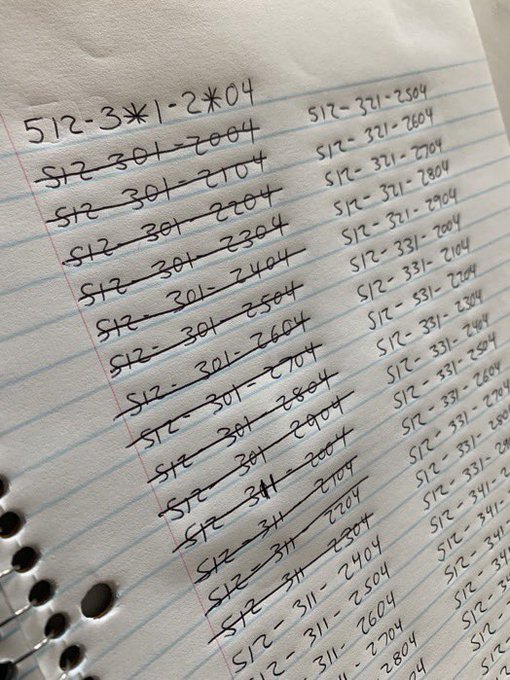 512-3*1-2*04
512-301-2004
512-301-2104
512-301-2204
512-301-2304
512-301-2404
512-301-2504
512-301-2604
512-301-2704
512-301-2804
512-301-2904
512-311-2004
512-311-2104
512-311-2204
512-311-2304
512-311-2404
512-311-2504
311-2604
2704
2804
512-321-2504
512-321-2604
512-321-2704
512-321-2804
512-321-2904
512-331-2004
512-331-2104
512-531-2204
512-331-2304
512-331-2404
512-331-2504
512-331-2604
512-331-2704
512-331-280
512-331-29
512-341-2
512-341-
512-341
512-34